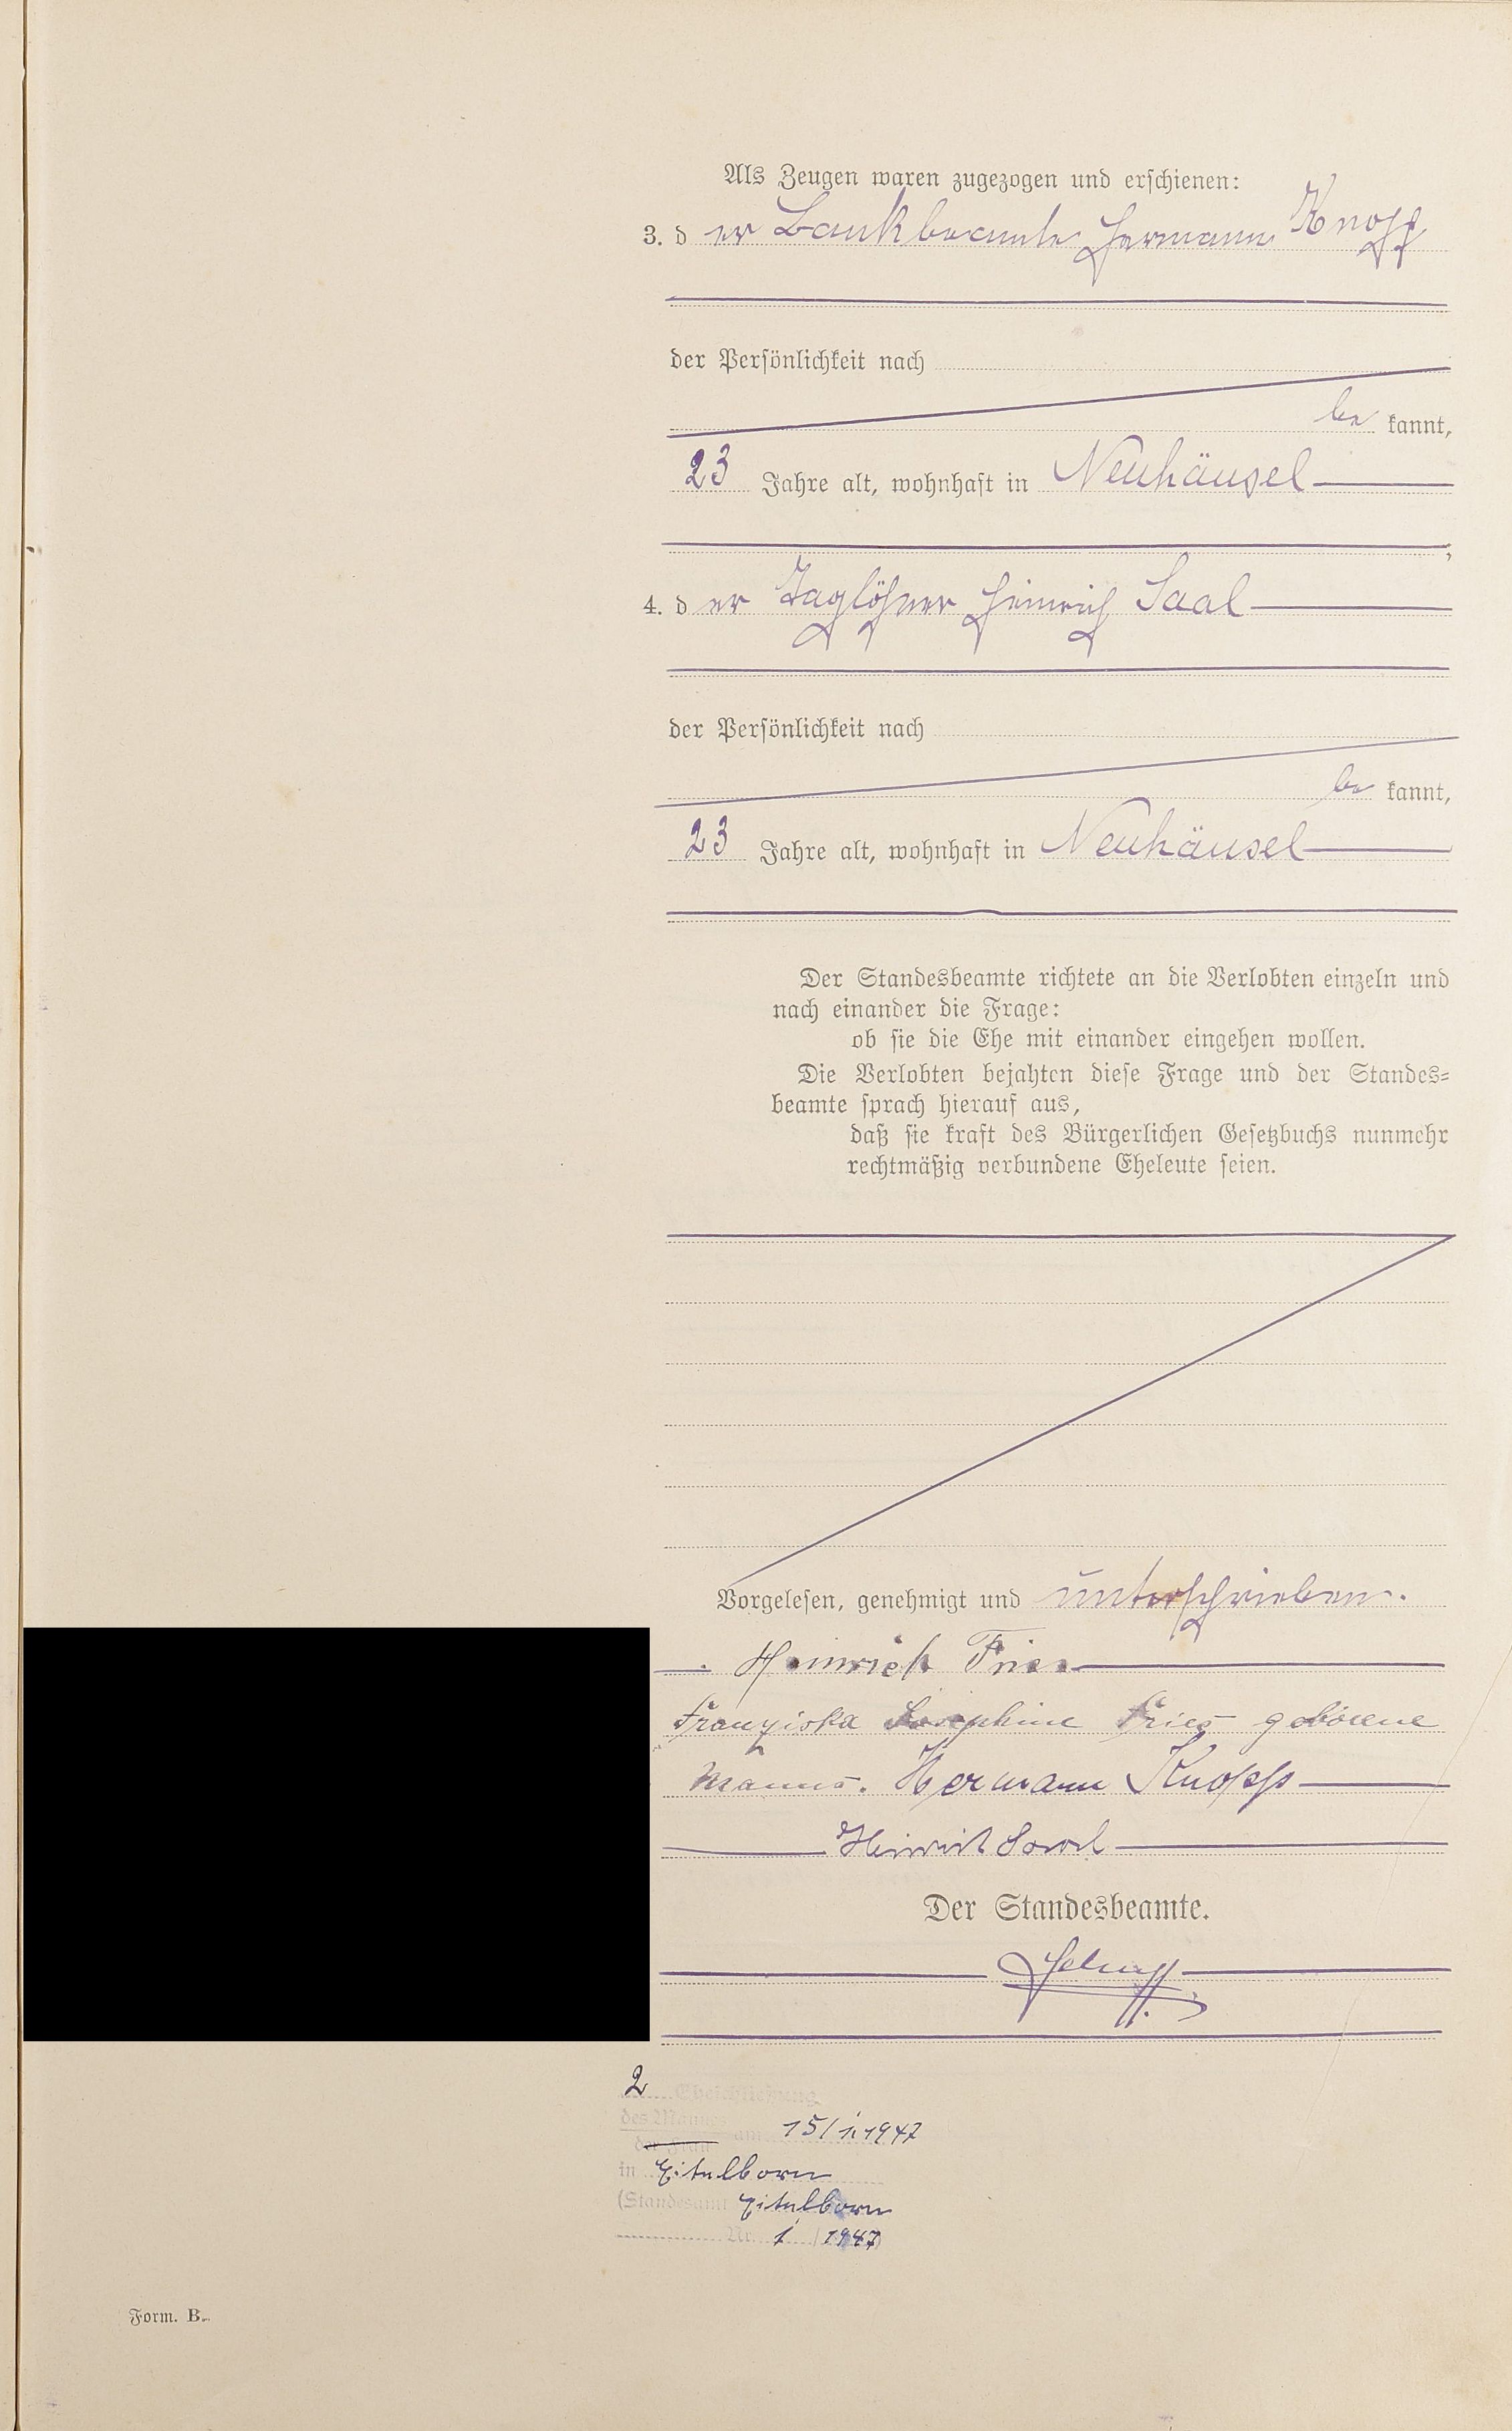 Als Zeugen waren zugezogen und erschienen:
3. d er Bankbeamte Hermann Knopp
der Persönlichkeit nach
be kannt,
23 Jahre alt, wohnhaft in Neuhäusel
;
4. d er Taglöhner Heinrich Saal
der Persönlichkeit nach
be kannt,
23 Jahre alt, wohnhaft in Neuhäusel
Der Standesbeamte richtete an die Verlobten einzeln und
nach einander die Frage:
ob sie die Ehe mit einander eingehen wollen.
Die Verlobten bejahten diese Frage und der Standes=
beamte sprach hierauf aus,
daß sie kraft des Bürgerlichen Gesetzbuchs nunmehr
rechtmäßig verbundene Eheleute seien.
Vorgelesen, genehmigt und unterschrieben.
Heinrich Fries
Franziska Josephine Fries geborene
Hermann Knopp
Heinrich Saal
Der Standesbeamte.
2 Eheschließung
des Mannes
der Frau am 15/1.1947
in Eitelborn
(Standesamt Eitelborn
Nr. 1 / 1947)
Form. B.